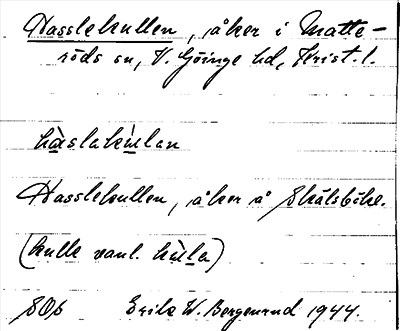 Hasslekullen, åker i Matte-
röds sn, V. Göinge hd, Krist. l.
hàslakùlan
Hasslekullen, åker å Skälsböke.
(kulle vanl. kùla)
SOp Erik W. Bergenrud 1944.